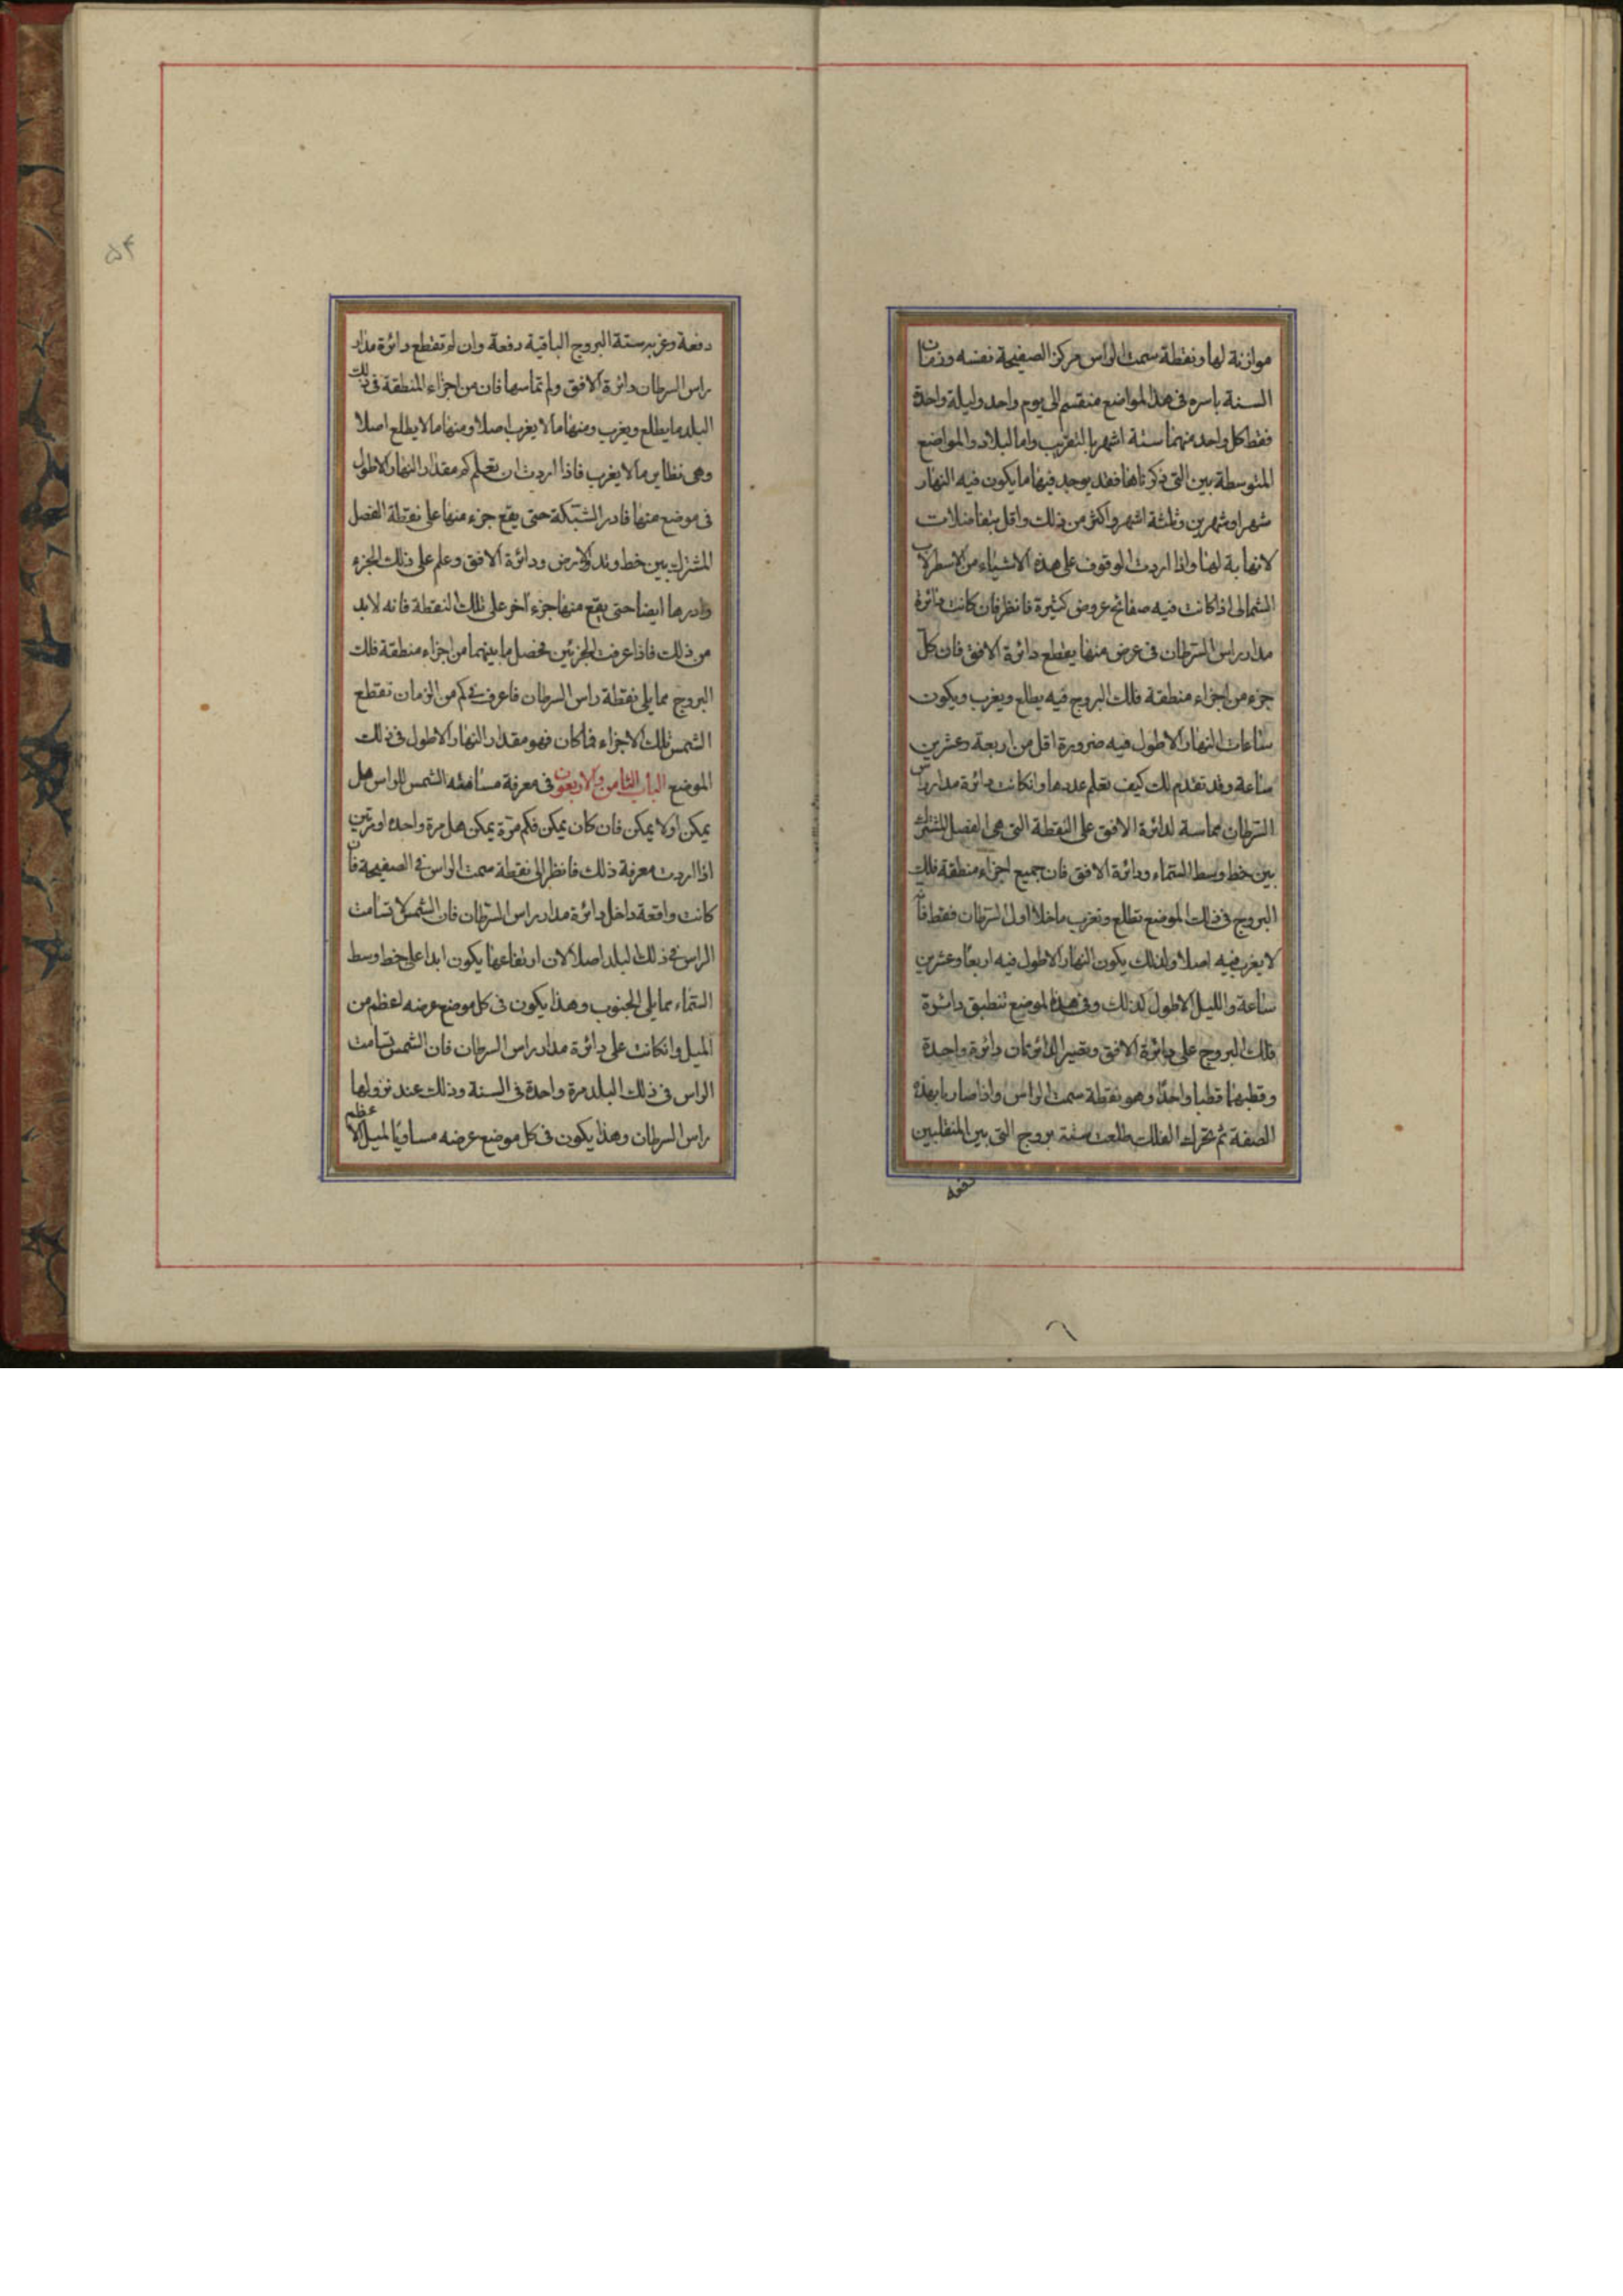 موازنة لها ونقطة سمت الراس مركز الصفيحة نفسه وزمان
السنة باسره فى هذا المواضع منقسم الى يوم واحد وليلة واحدة
فقط كل واحد منهما ستة اشهر بالتقريب واما البلاد والمواضع
المتوسطة بين التى ذكرناها فقد يوجد فيها ما يكون فيه النهار
شهرا وشهرين وثلثة اشهر واكثر من ذلك واقل بتفاضلات
لا نهاية لها واذا اردت الوقوف على هذه الاشياء من الاسطرلاب
الشمالى اذا كانت فيه صفائح عروض كثيرة فانظر فان كانت دائرة
مدار راس السرطان فى عرض منها يقطع دائرة الافق فان كل
جزء من اجزاء منطقة فلك البروج فيه يطلع ويغرب ويكون
ساعات النهار الاطول فيه ضرورة اقل من اربعة وعشرين
ساعة وقد تقدم لك كيف تعلم عددها وانكانت دائرة مدار راس
السرطان مماسة لدائرة الافق على النقطة التى هى الفصل المشترك
بين خط وسط السماء ودائرة الافق فان جميع اجزاء منطقة فلك
البروج فى ذلك الموضع تطلع وتغرب ما خلا اول السرطان فقط فانه
لا يغرب فيه اصلا ولذلك يكون النهار الاطول فيه اربعا وعشرين
ساعة والليل الاطول كذلك وفى هذا الموضع تنطبق دائرة
فلك البروج على دائرة الافق وتصير الدائرتان دائرة واحدة
وقطبهما قطبا واحدا وهو نقطة سمت الراس واذا صارا بهذه
الصفة ثم تحرك الفلك طلعت ستة بروج التى بين المنقلبين
دفعة
۵۴
دفعة وغرب ستة البروج الباقية دفعة وان لم تقطع دائرة مدار
راس السرطان دائرة الافق ولم تماسها فان من اجزاء المنطقة فى ذلك
البلد ما يطلع ويغرب ومنها ما لا يغرب اصلا ومنها ما لا يطلع اصلا
وهى نظاير ما لا يغرب فاذا اردت ان تعلم كم مقدار النهار الاطول
فى موضع منها فادر الشبكة حتى يقع جزء منها على نقطة الفصل
المشترك بين خط وتد الارض ودائرة الافق وعلم على ذلك الجزء
وادرها ايضا حتى يقع منها جزء اخر على تلك النقطة فانه لا بد
من ذلك فاذا عرفت الجزئين تحصل ما بينهما من اجزاء منطقة فلك
البروج مما يلى نقطة راس السرطان فاعرف فى كم من الزمان تقطع
الشمس تلك الاجزاء فما كان فهو مقدار النهار الاطول فى ذلك
الموضع الباب الثامن والاربعون فى معرفة مسامتة الشمس للراس هل
يمكن او لا يمكن فان كان يمكن فكم مرة يمكن هل مرة واحدة او مرتين
اذا اردت معرفة ذلك فانظر الى نقطة سمت الراس فى الصفيحة فان
كانت واقعة داخل دائرة مدار راس السرطان فان الشمس لا تسامت
الراس فى ذلك البلد اصلا لان ارتفاعها يكون ابدا على خط وسط
السماء مما يلى الجنوب وهذا يكون فى كل موضع عرضه اعظم من
الميل وانكانت على دائرة مدار راس السرطان فان الشمس تسامت
الراس فى ذلك البلد مرة واحدة فى السنة وذلك عند نزولها
راس السرطان وهذا يكون فى كل موضع عرضه مساويا لميل الاعظم